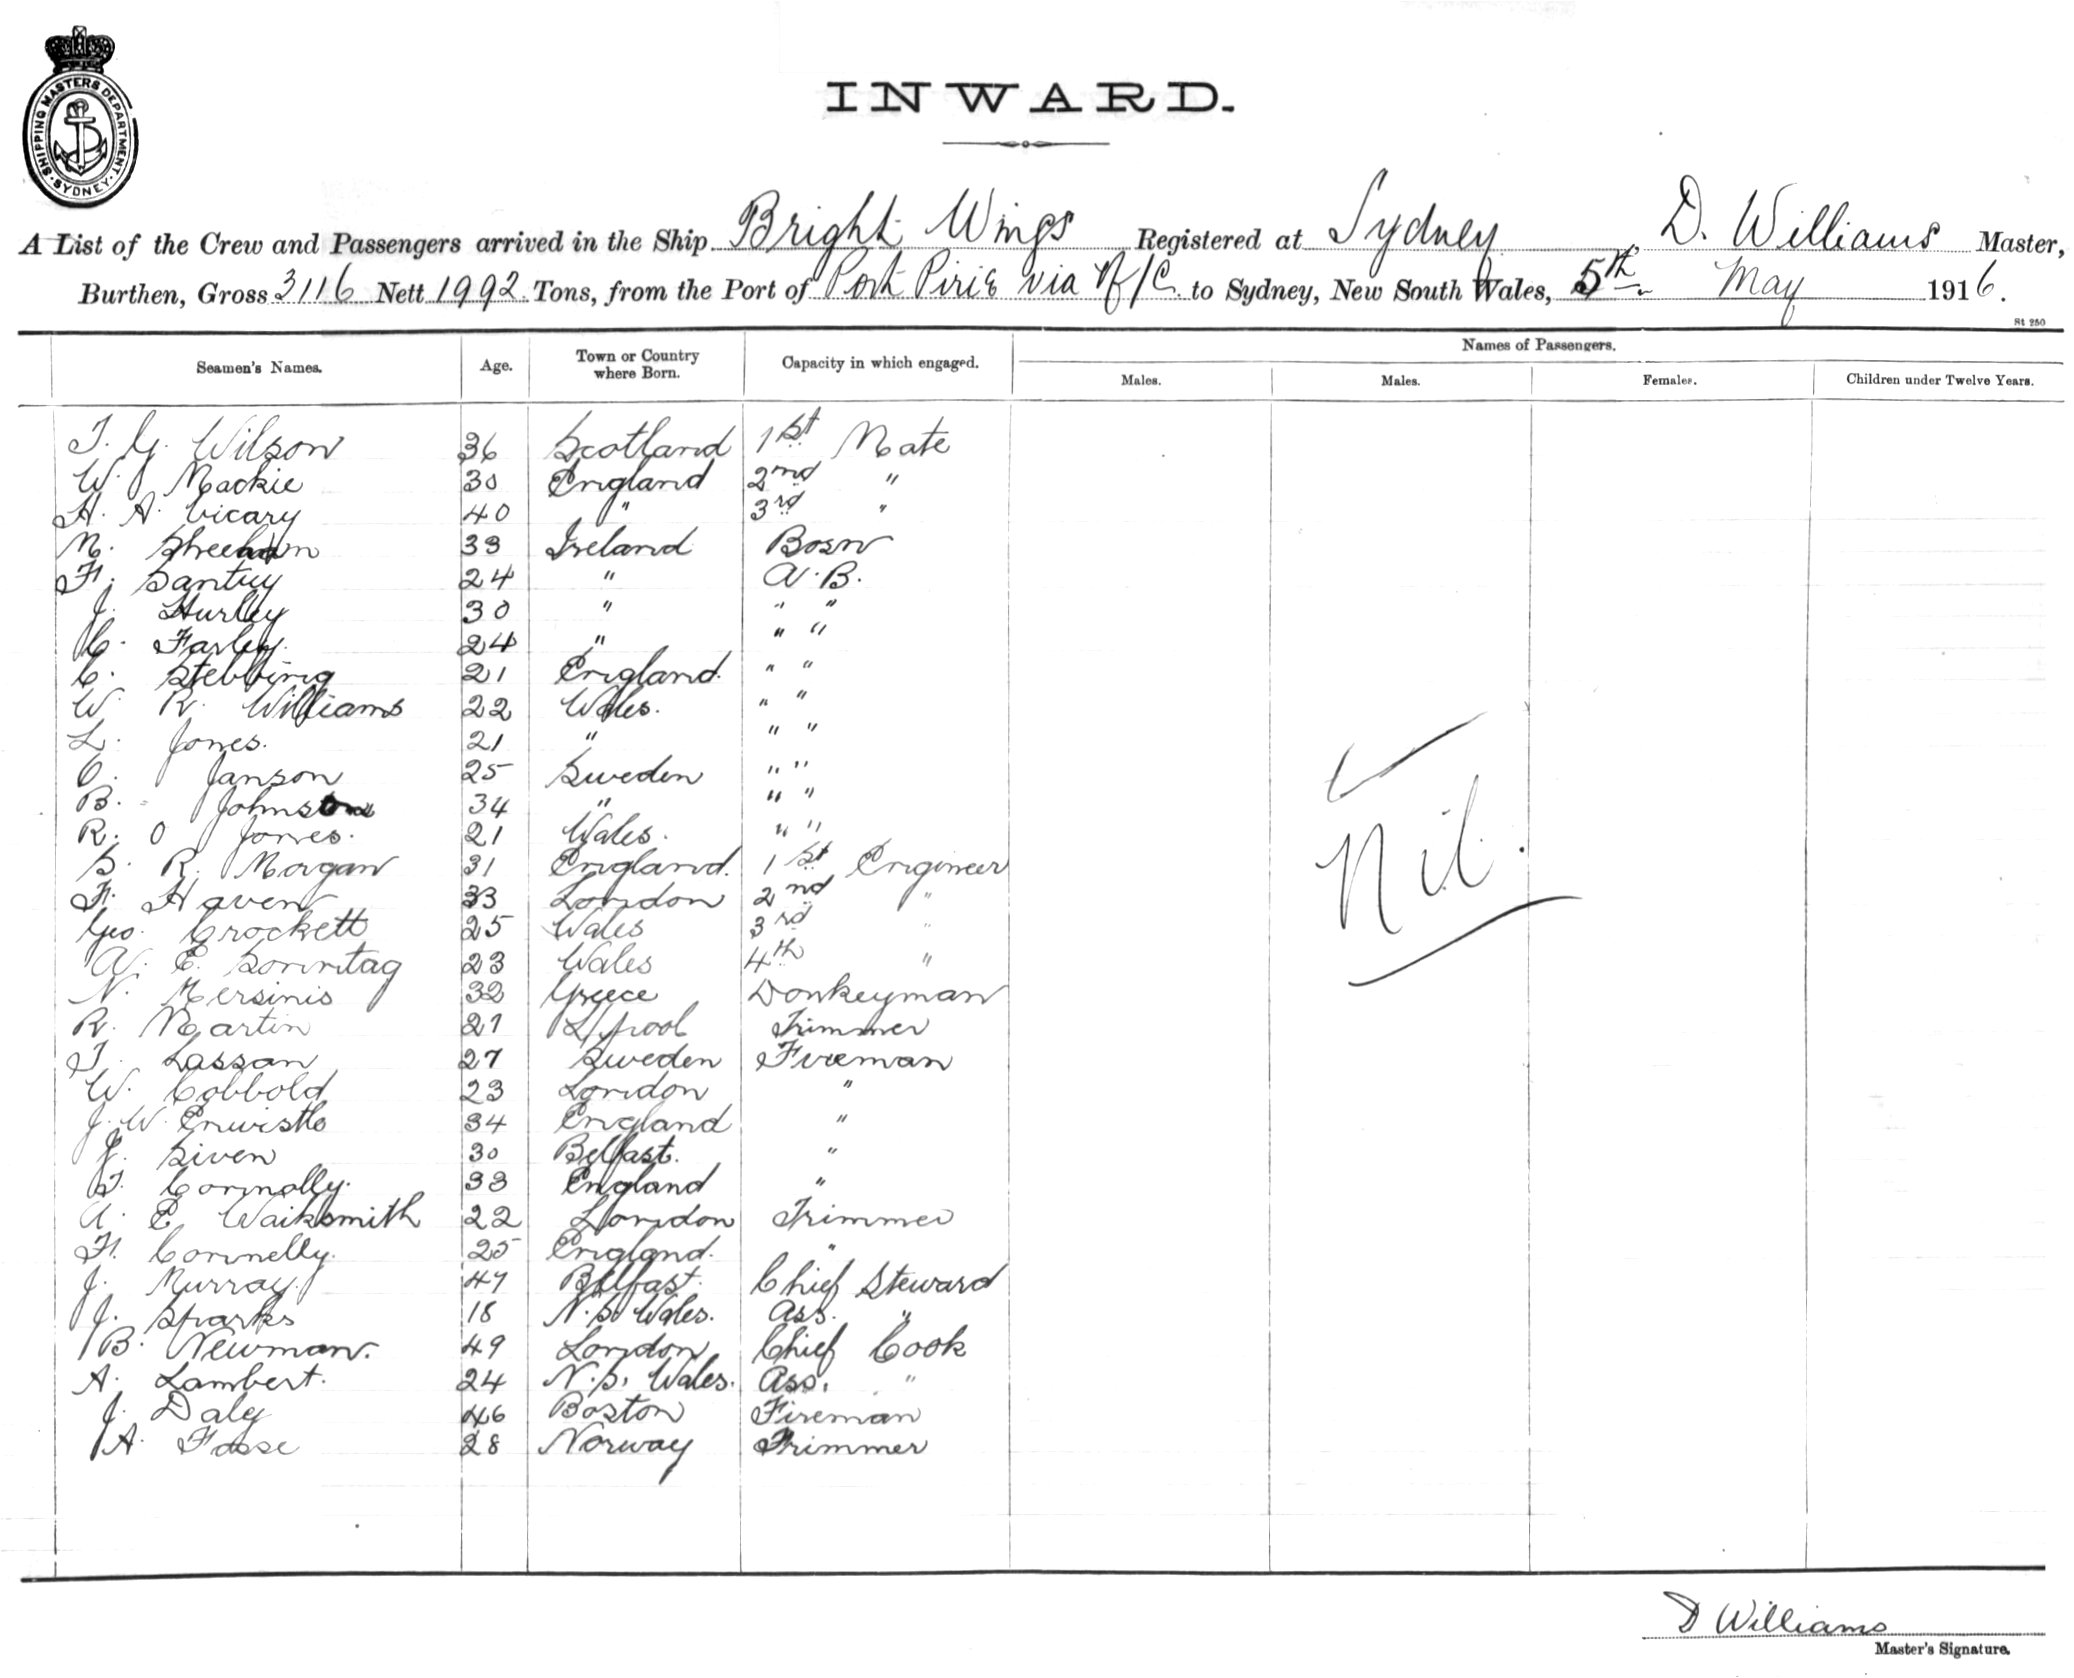 SHIPPING MASTERS DEPARTMENT. SYDNEY
INWARD.
A List of the Crew and Passengers arrived in the Ship Bright Wings Registered at Sydney, D. Williams Master,
Burthen, Gross 3116 Nett 1992 Tons, from the Port of Port Pirie via N/C. to Sydney, New South Wales, 5th May 1916.
St 250
Seamen's Names. Age. Town or Country where Born. Capacity in which engaged. Names of Passengers.
Males. Males. Females. Children under Twelve Years.
T. G. Wilson 36 Scotland 1st Mate
W. Mackie 30 England 2nd "
H. A. Vicary 40 " 3rd "
M. Sheehan 33 Ireland Bosn
F. Santry 24 " A.B.
J. Hurley 30 " " "
C. Farley. 24 " " "
C. Stebbing 21 England. " "
W. R. Williams 22 Wales. " "
L. Jones. 21 " " "
O. Janson 25 Sweden " "
B. Johnston 34 " " "
R. O Jones. 21 Wales. " "
S. R. Morgan 31 England. 1st Engineer
F. Haven 33 London 2nd "
Geo. Crockett 25 Wales 3rd "
A. E. Sonntag 23 Wales 4th "
N. Mersinis 32 Greece Donkeyman
R. Martin 27 L/pool Trimmer
T. Lassan 27 Sweden Fireman
W. Cobbold 23 London "
J. W. Enwistle 34 England "
J. Siven 30 Belfast. "
T. Connolly. 33 England "
A. E. Waiksmith 22 London Trimmer
F. Connelly. 25 England. "
J. Murray. 47 Belfast. Chief Steward
J. Sparks 18 N.S. Wales. Ass. "
B. Newman. 49 London Chief Cook
A. Lambert. 24 N.S. Wales. Ass. "
J. Daley 46 Boston Fireman
A. Fosse 28 Norway Trimmer
Nil.
D Williams
Master's Signature.